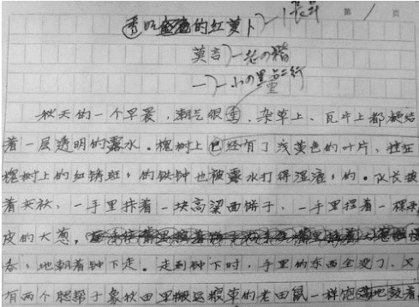 第 1 页
透明的红萝卜
莫言
一
秋天的一个早晨,潮气很重,杂草上,瓦片上都凝结
着一层透明的露水。槐树上已经有了浅黄色的叶片,挂在
槐树上的红锈斑斑的铁钟也被露水打得湿漉漉的。队长披
着夹袄,一手里拤着一块高粱面饼子,一手里捏着一棵剥
皮的大葱,
吞,地朝着钟下走。走到钟下时,手里的东西全没了,只
有两个腮帮子象秋田里搬运粮草的老田鼠一样饱满地鼓着